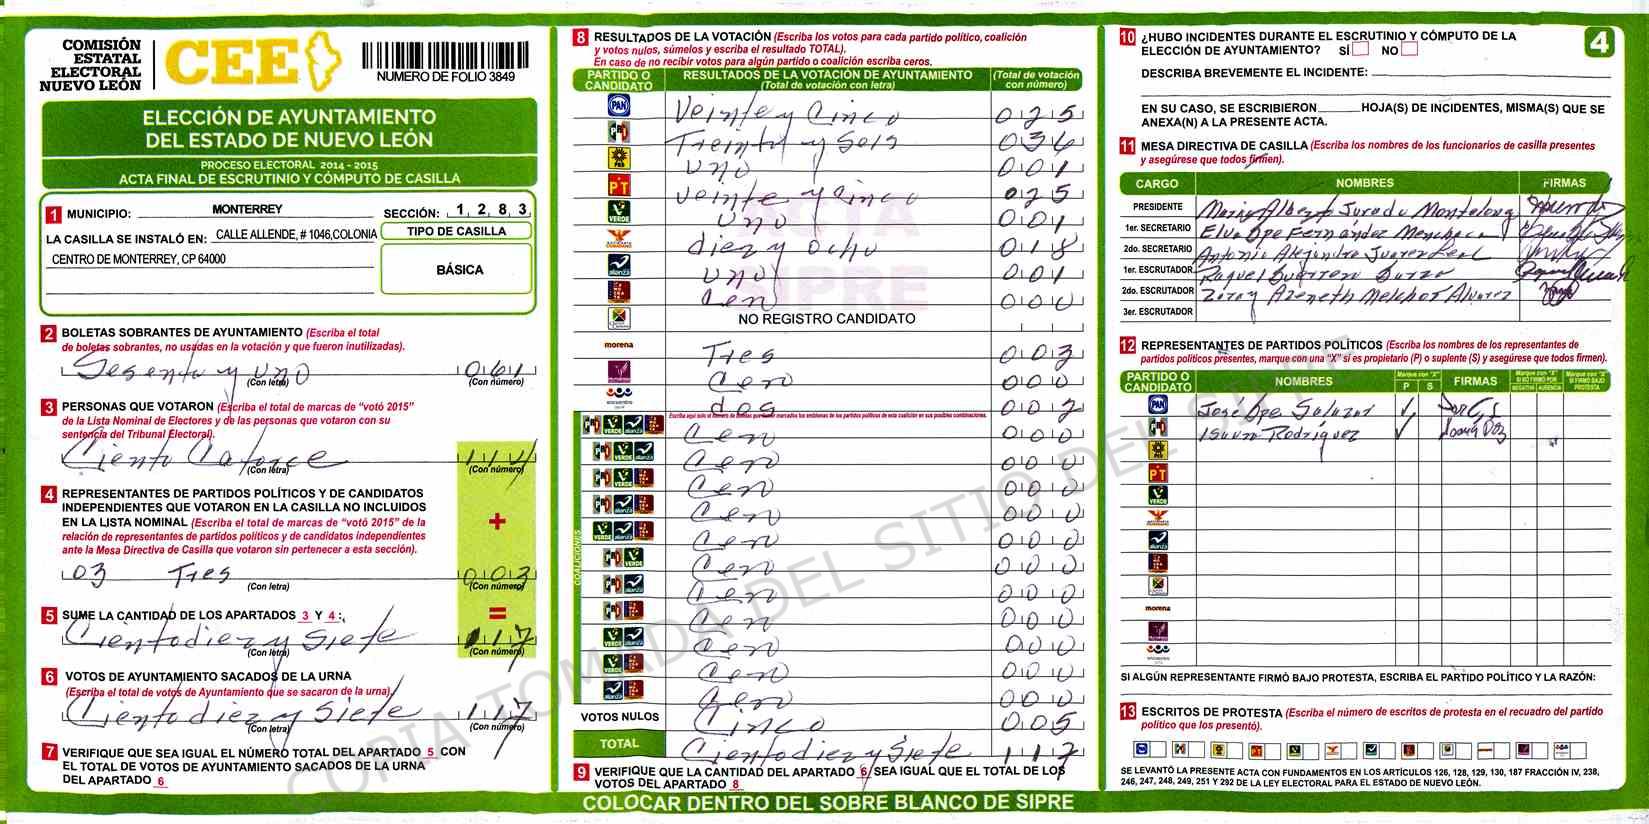 COMISIÓN
ESTATAL
ELECTORAL
NUEVO LEÓN
CEE
NUMERO DE FOLIO 3849
ELECCIÓN DE AYUNTAMIENTO
DEL ESTADO DE NUEVO LEÓN
PROCESO ELECTORAL 2014 - 2015
ACTA FINAL DE ESCRUTINIO Y CÓMPUTO DE CASILLA
1 MUNICIPIO: MONTERREY SECCIÓN: 1 2 8 3
LA CASILLA SE INSTALÓ EN: CALLE ALLENDE, # 1046,COLONIA
CENTRO DE MONTERREY, CP 64000
TIPO DE CASILLA
BÁSICA
2 BOLETAS SOBRANTES DE AYUNTAMIENTO (Escriba el total
de boletas sobrantes, no usadas en la votación y que fueron inutilizadas).
Sesenta y uno 061
(Con letra) (Con número)
3 PERSONAS QUE VOTARON (Escriba el total de marcas de “votó 2015”
de la Lista Nominal de Electores y de las personas que votaron con su
sentencia del Tribunal Electoral).
Ciento Catorce 114
(Con letra) (Con número)
4 REPRESENTANTES DE PARTIDOS POLÍTICOS Y DE CANDIDATOS
INDEPENDIENTES QUE VOTARON EN LA CASILLA NO INCLUIDOS
EN LA LISTA NOMINAL (Escriba el total de marcas de “votó 2015” de la
relación de representantes de partidos políticos y de candidatos independientes
ante la Mesa Directiva de Casilla que votaron sin pertenecer a esta sección).
+
03 Tres 003
(Con letra) (Con número)
5 SUME LA CANTIDAD DE LOS APARTADOS 3 Y 4:
=
Ciento diez y Siete 117
(Con letra) (Con número)
6 VOTOS DE AYUNTAMIENTO SACADOS DE LA URNA
(Escriba el total de votos de Ayuntamiento que se sacaron de la urna).
Ciento diez y Siete 117
(Con letra) (Con número)
7 VERIFIQUE QUE SEA IGUAL EL NÚMERO TOTAL DEL APARTADO 5 CON
EL TOTAL DE VOTOS DE AYUNTAMIENTO SACADOS DE LA URNA
DEL APARTADO 6
8 RESULTADOS DE LA VOTACIÓN (Escriba los votos para cada partido político, coalición
y votos nulos, súmelos y escriba el resultado TOTAL).
En caso de no recibir votos para algún partido o coalición escriba ceros.
PARTIDO O CANDIDATO RESULTADOS DE LA VOTACIÓN DE AYUNTAMIENTO (Total de votación con letra) (Total de votación con número)
PAN Veinte y Cinco 025
PRD Treinta y Seis 036
PRD Uno 001
PT veinte y cinco 025
VERDE Uno 001
diez y ocho 018
alianza Uno 001
Cero 000
NO REGISTRO CANDIDATO
morena Tres 003
Cero 000
encuentro dos 002
Escriba aquí solo el número de boletas que fueron marcados los emblemas de los partidos políticos de esta coalición en sus posibles combinaciones.
COALICIONES
Cero 000
Cero 000
Cero 000
Cero 000
Cero 000
Cero 000
Cero 000
Cero 000
Cero 000
Cero 000
Cero 000
VOTOS NULOS Cinco 005
TOTAL Ciento diez y Siete 117
9 VERIFIQUE QUE LA CANTIDAD DEL APARTADO 6 SEA IGUAL QUE EL TOTAL DE LOS
VOTOS DEL APARTADO 8
COLOCAR DENTRO DEL SOBRE BLANCO DE SIPRE
ACTA
SIPRE
COPIA TOMADA DEL SITIO DEL SIPRE
4
10 ¿HUBO INCIDENTES DURANTE EL ESCRUTINIO Y CÓMPUTO DE LA
ELECCIÓN DE AYUNTAMIENTO? SÍ NO
DESCRIBA BREVEMENTE EL INCIDENTE:
EN SU CASO, SE ESCRIBIERON HOJA(S) DE INCIDENTES, MISMA(S) QUE SE
ANEXA(N) A LA PRESENTE ACTA.
11 MESA DIRECTIVA DE CASILLA (Escriba los nombres de los funcionarios de casilla presentes
y asegúrese que todos firmen).
CARGO NOMBRES FIRMAS
PRESIDENTE Mario Alberto Jurado Montelong
1er. SECRETARIO Elva Dpe Fernandez Menchaca
2do. SECRETARIO Antonio Alejandro Juarez Leal
1er. ESCRUTADOR Raquel Guerrero Garza
2do. ESCRUTADOR Zoray Azeneth Melchor Alvarez
3er. ESCRUTADOR
12 REPRESENTANTES DE PARTIDOS POLÍTICOS (Escriba los nombres de los representantes de
partidos políticos presentes, marque con una “X” si es propietario (P) o suplente (S) y asegúrese que todos firmen).
PARTIDO O CANDIDATO NOMBRES Marque con “X” P S FIRMAS Marque con “X” SI NO FIRMÓ POR NEGATIVA AUSENCIA Marque con “X” SI FIRMÓ BAJO PROTESTA
PAN Jose Dpe Salazar
PRD Isaura Rodríguez
PRD
PT
VERDE
alianza
morena
encuentro
SI ALGÚN REPRESENTANTE FIRMÓ BAJO PROTESTA, ESCRIBA EL PARTIDO POLÍTICO Y LA RAZÓN:
13 ESCRITOS DE PROTESTA (Escriba el número de escritos de protesta en el recuadro del partido
político que los presentó).
SE LEVANTÓ LA PRESENTE ACTA CON FUNDAMENTOS EN LOS ARTÍCULOS 126, 128, 129, 130, 187 FRACCIÓN IV, 238,
246, 247, 248, 249, 251 Y 292 DE LA LEY ELECTORAL PARA EL ESTADO DE NUEVO LEÓN.